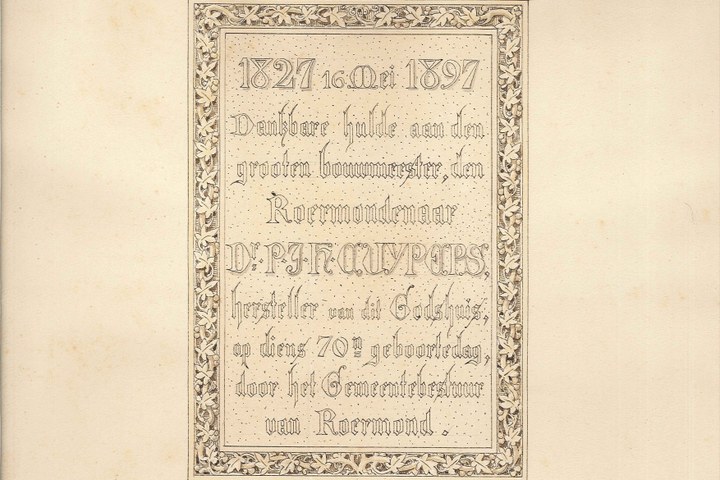 1827 16 Mei 1897
Dankbare hulde aan den
grooten bouwmeester, den
Roermondenaar
Dr. P. J. H. CUYPERS,
hersteller van dit Godshuis,
op diens 70n geboortedag,
door het Gemeentebestuur
van Roermond.